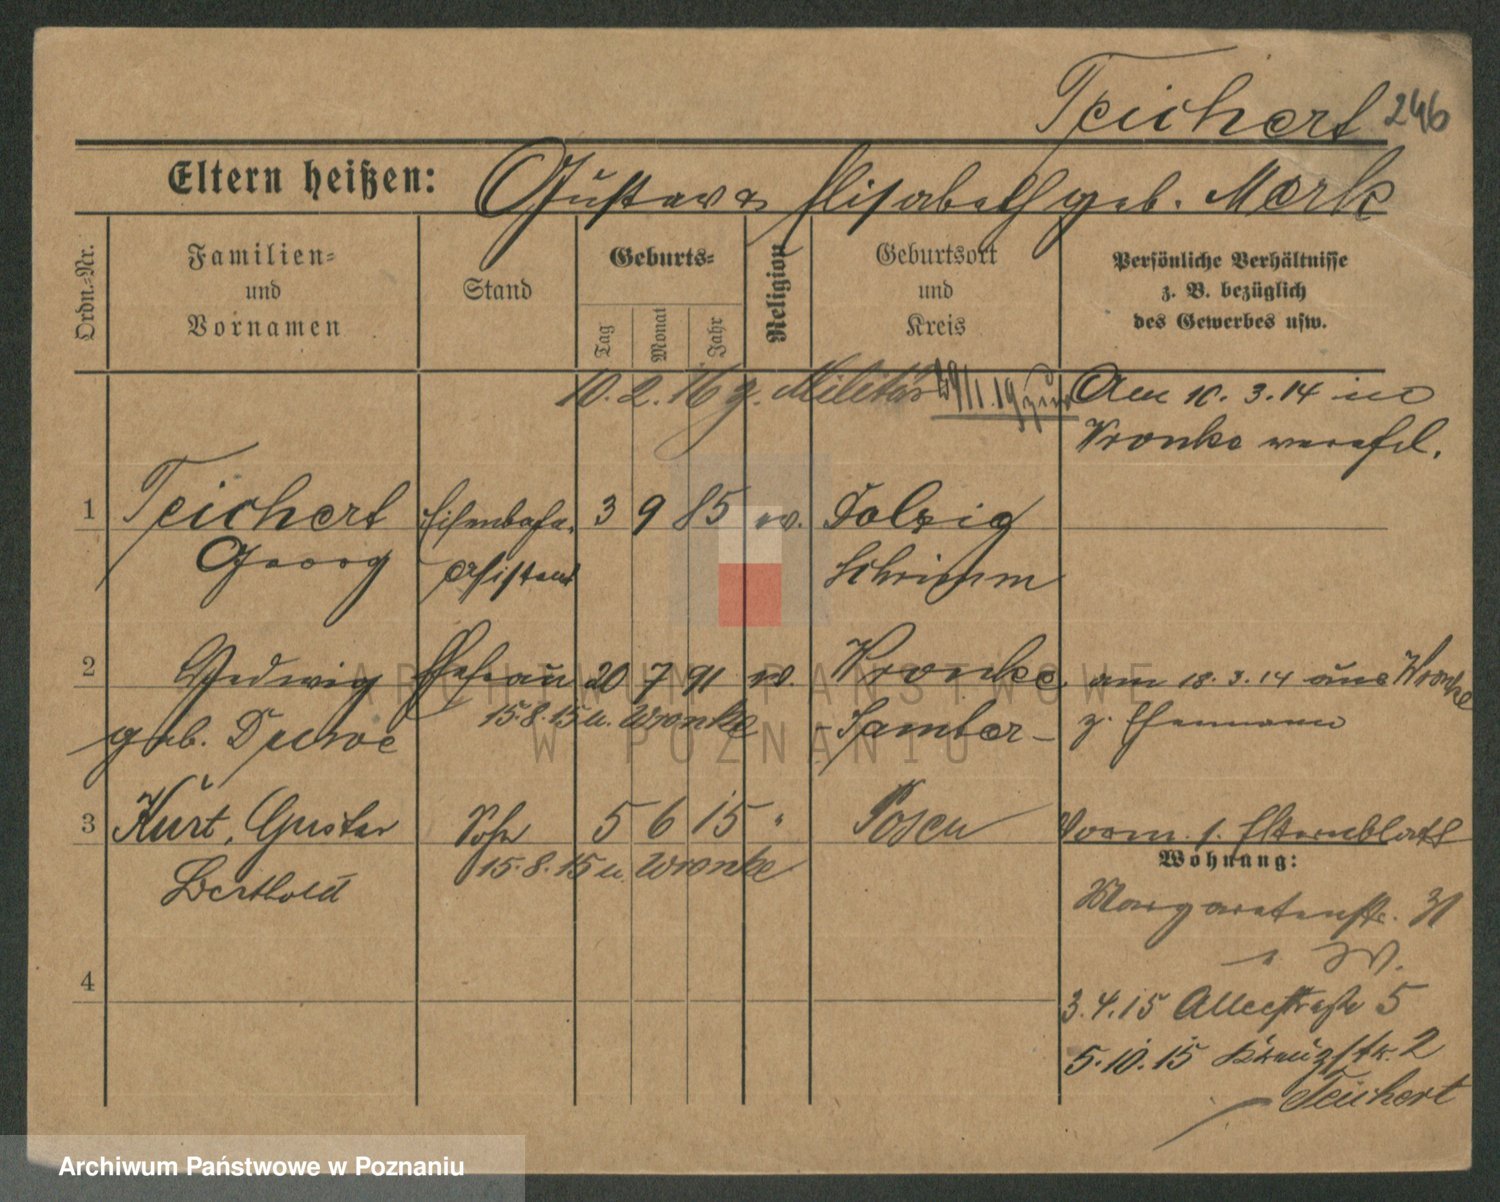 Teichert 246
Eltern heißen: Gustav u. Elisabeth geb. Mark
Ordn.-Nr.
Familien-
und
Vornamen
Stand
Geburts-
Tag
Monat
Jahr
Religion
Geburtsort
und
Kreis
Persönliche Verhältnisse
z. B. bezüglich
des Gewerbes usw.
10. 2. 16 z. Militär 29/1. 19 zur
Am 10. 3. 14 in
Wronke verehel.
1 Teichert Eisenbahn- 3 9 85 ev. Dolzig
Georg assistent Schrimm
2 Hedwig Ehefrau 20 7 91 ev. Wronke am 18. 3. 14 aus Wronke
15.8.15 n. Wronke
geb. Samter z. Ehemann
3 Kurt, Gustav Sohn 5 6 15 " Posen Vorm. s. Elternblatt
15.8.15 n. Wronke
Berthold
Wohnung:
Margaretenstr. 31
4
3.4.15 Alleestraße 5
5.10.15 Kreuzstr. 2
Teichert
ARCHIWUM PAŃSTWOWE
W POZNANIU
Archiwum Państwowe w Poznaniu